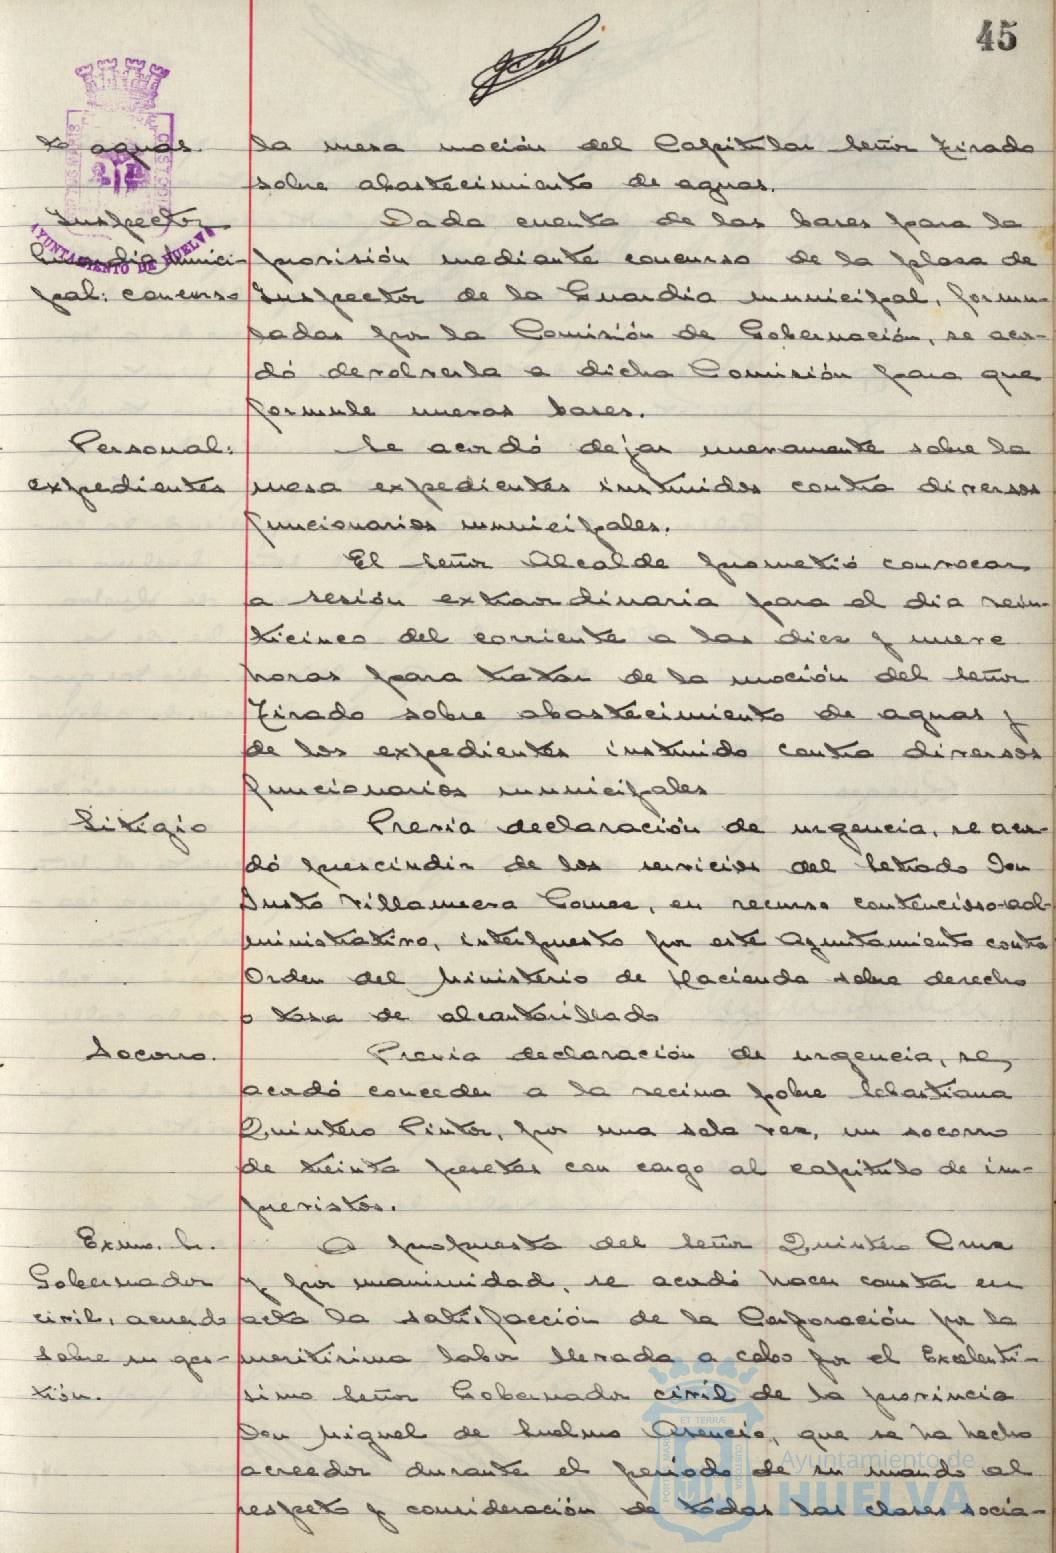 45
to aguas.
la mesa moción del Capitular Señor Tirado
sobre abastecimiento de aguas.
Inspector
Guardia Munici-
pal: concurso
Dada cuenta de las bases para la
provisión mediante concurso de la plaza de
Inspector de la Guardia municipal, formu-
ladas por la Comisión de Gobernación, se acor-
dó devolverla a dicha Comisión para que
formule nuevas bases.
Personal:
expedientes
Se acordó dejar nuevamente sobre la
mesa expedientes instruidos contra diversos
funcionarios municipales.
El Señor Alcalde prometió convocar
a sesión extraordinaria para el dia vein-
ticinco del corriente a las diez y nueve
horas para tratar de la moción del Señor
Tirado sobre abastecimiento de aguas y
de los expedientes instruido contra diversos
funcionarios municipales
Litigio
Previa declaración de urgencia, se acor-
dó prescindir de los servicios del Letrado Don
Justo Villanueva Gomez, en recurso contencioso-ad-
ministrativo, interpuesto por este Ayuntamiento contra
Orden del Ministerio de Hacienda sobre derecho
o tasa de alcantarillado
Socorro.
Previa declaración de urgencia, se,
acordó conceder a la vecina pobre Sebastiana
Quintero Pintor, por una sola vez, un socorro
de treinta pesetas con cargo al capitulo de im-
previstos.
Exmo. Sr.
Gobernador
civil, acuerdo
sobre su ges-
tión.
A propuesta del Señor Quintero Cruz
y por unanimidad, se acordó hacer constar en
acta la satisfacción de la Corporación por la
meritisima labor llevada a cabo por el Excelenti-
simo Señor Gobernador civil de la provincia
Don Miguel de Suelmo Asencio, que se ha hecho
acreedor durante el periodo de su mando al
respeto y consideración de todas las clases socia-
AYUNTAMIENTO DE HUELVA
Ayuntamiento de
HUELVA